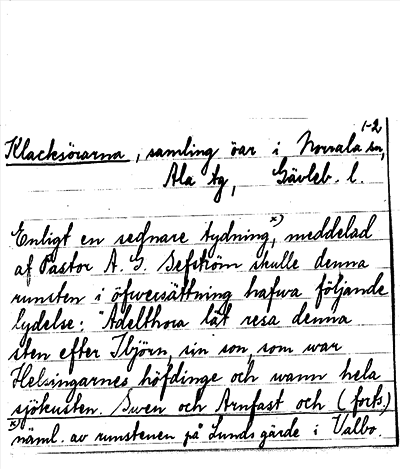 1-2
Klacksörarna, samling öar i Norrala sn,
Ala tg, Gävleb. l.
Enligt en sednare tydning,ˣ⁾ meddelad
af Pastor A. G. Sefström skulle denna
runsten i öfwersättning hafwa följande
lydelse: "Adelthora lät resa denna
sten efter Ibjörn, sin son, som war
Helsingarnes höfdinge och wann hela
sjökusten. Swen och Arnfast och (forts)
ˣ⁾ näml. av runstenen på Lunds gärde i Valbo.